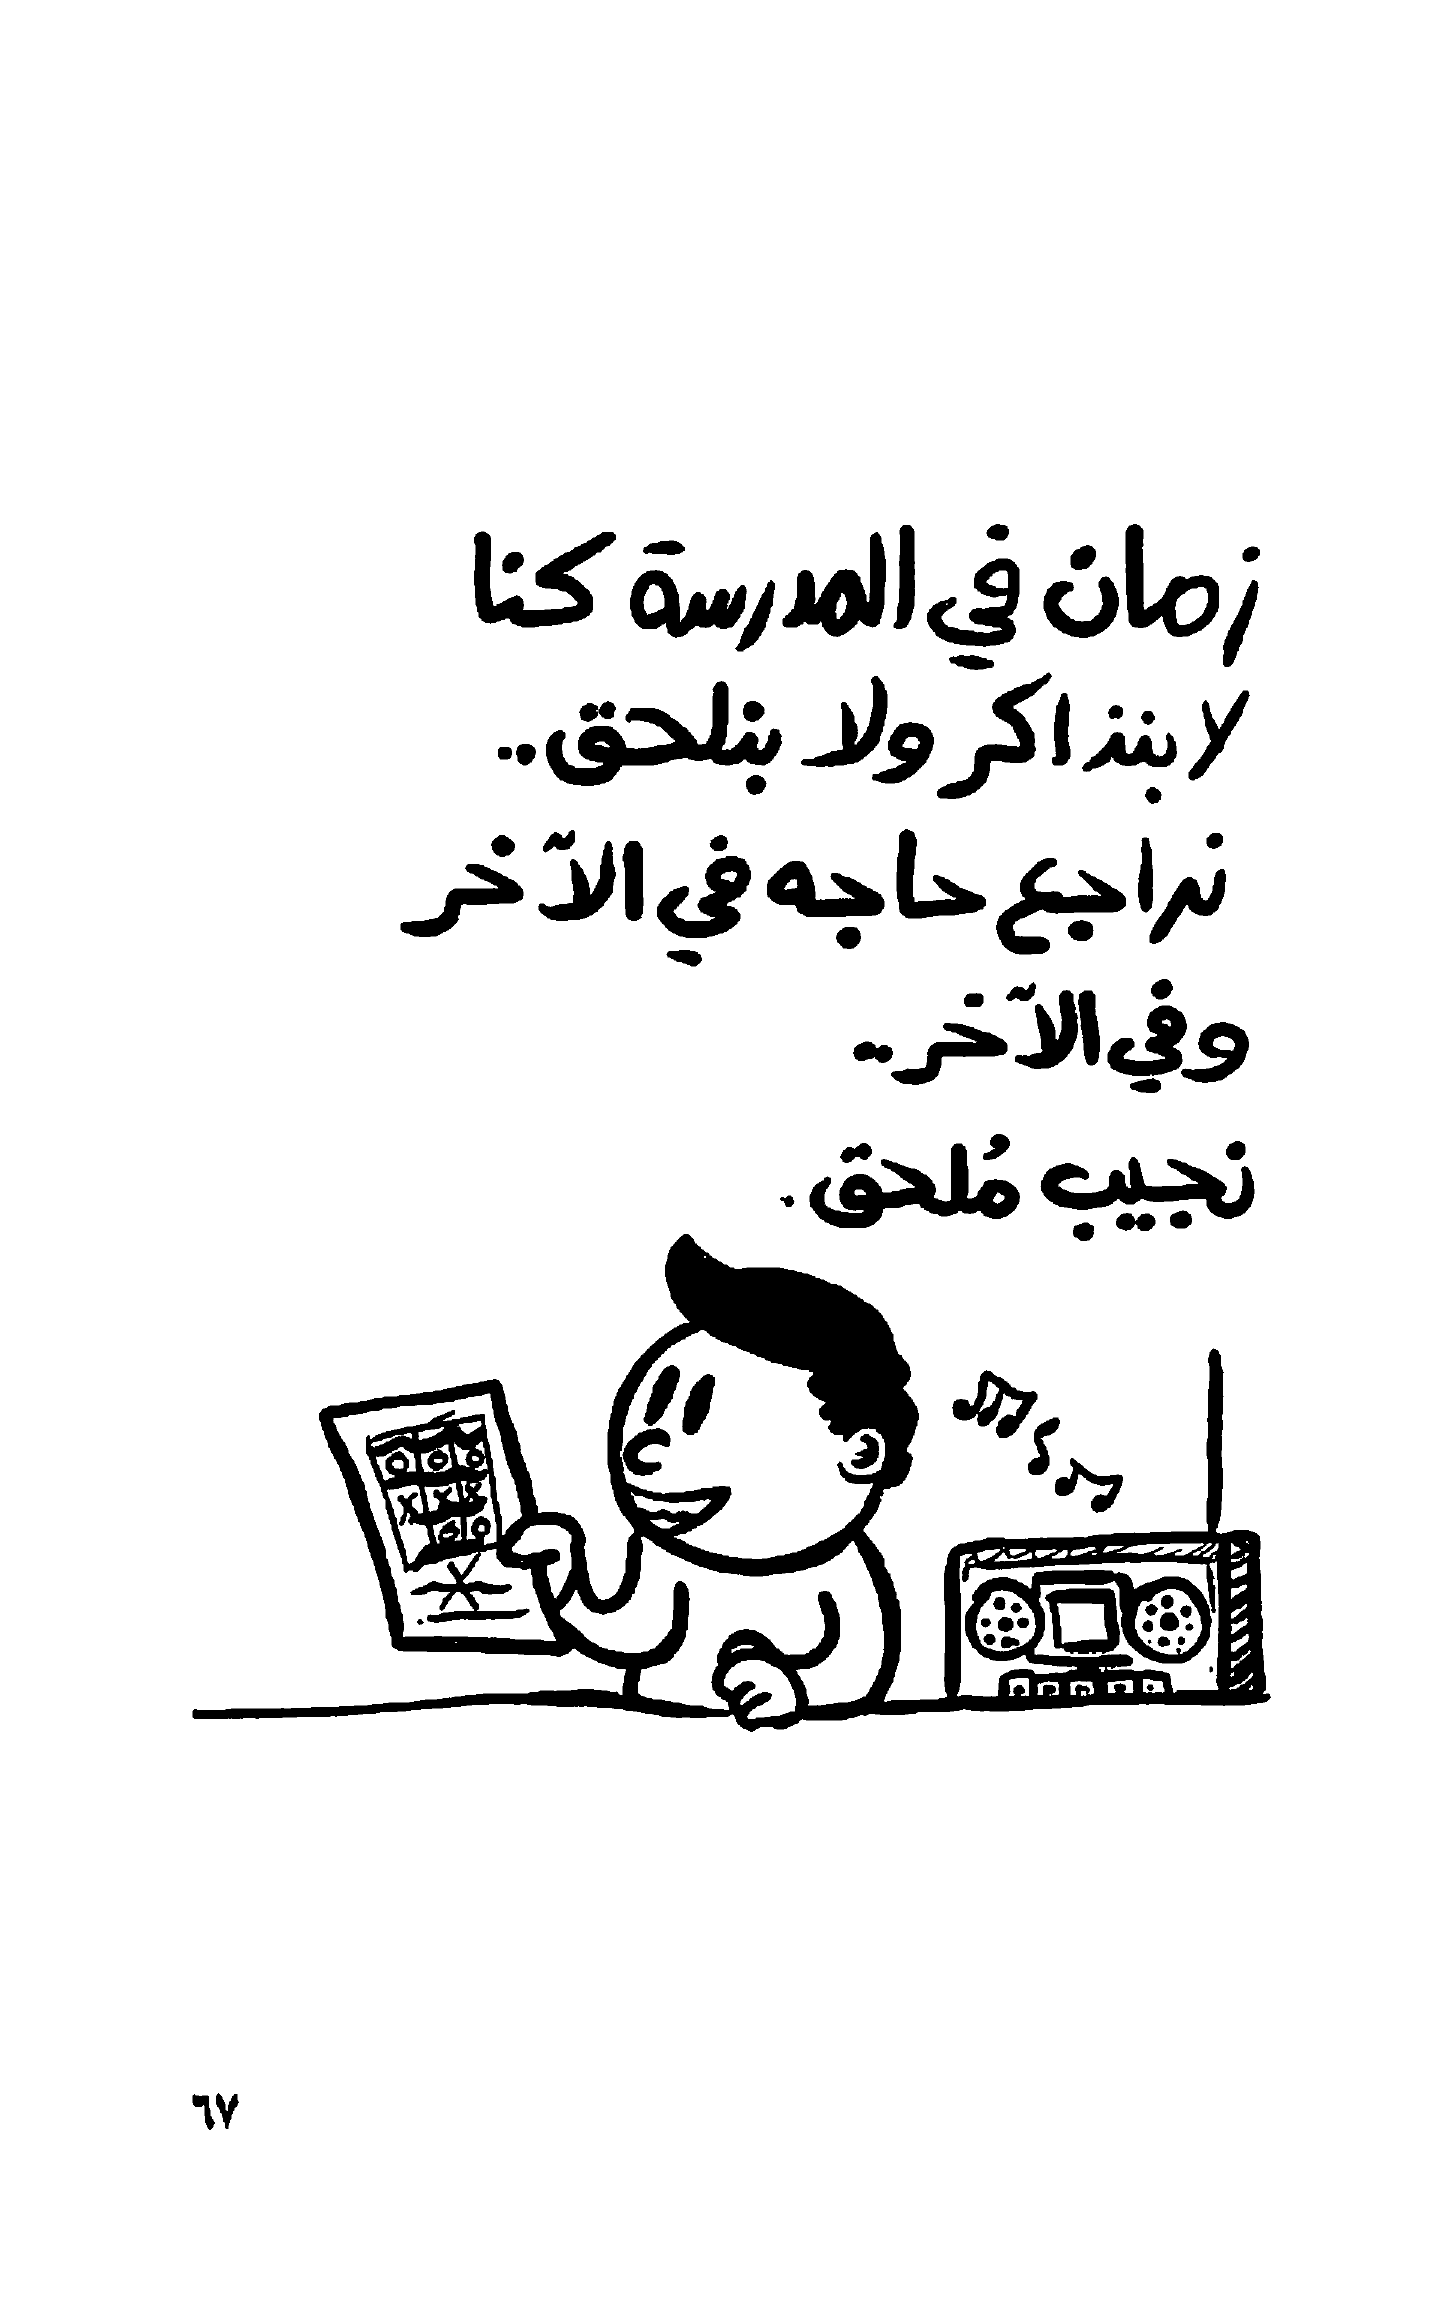 زمان في المدرسة كنا
لا بنذاكر ولا بنلحق..
نراجع حاجه في الآخر
وفي الآخر..
نجيب مُلحق.
٦٧